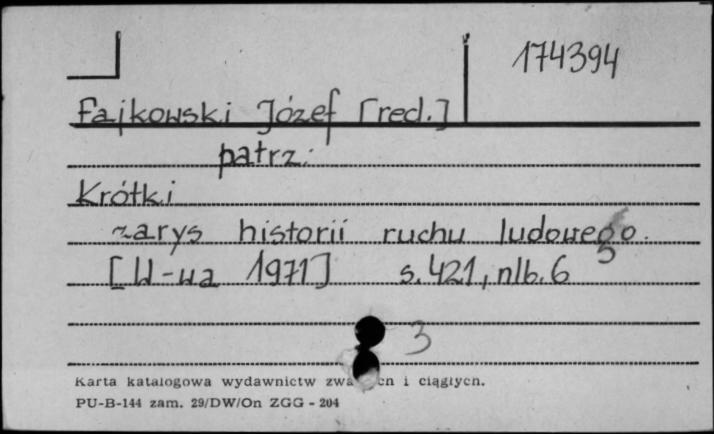 174394
Fajkowski Józef [red.]
patrz:
Krótki
zarys historii ruchu ludowego.
[W-wa 1971] s. 421, nlb. 6
3
Karta katalogowa wydawnictw i ciągłych.
PU-B-144 zam. 29/DW/On ZGG - 204